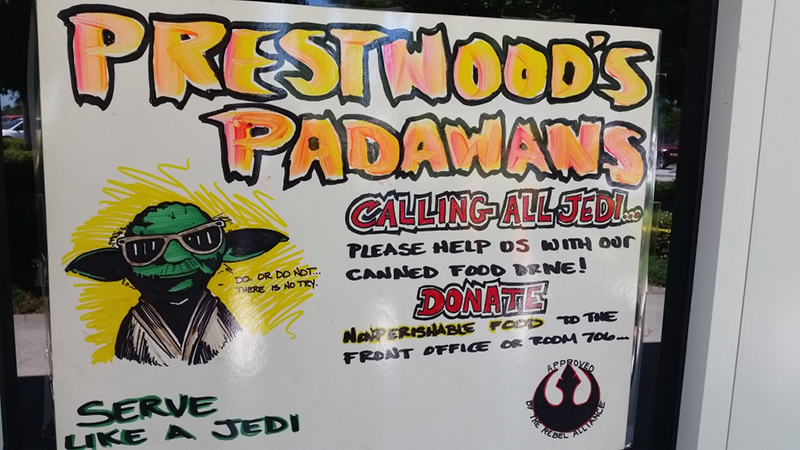 PRESTWOOD'S
PADAWANS
CALLING ALL JEDI...
PLEASE HELP US WITH OUR
CANNED FOOD DRIVE!
DONATE
NONPERISHABLE FOOD TO THE
FRONT OFFICE OR ROOM 706...
DO. OR DO NOT...
THERE IS NO TRY.
SERVE
LIKE A JEDI
APPROVED
BY THE REBEL ALLIANCE